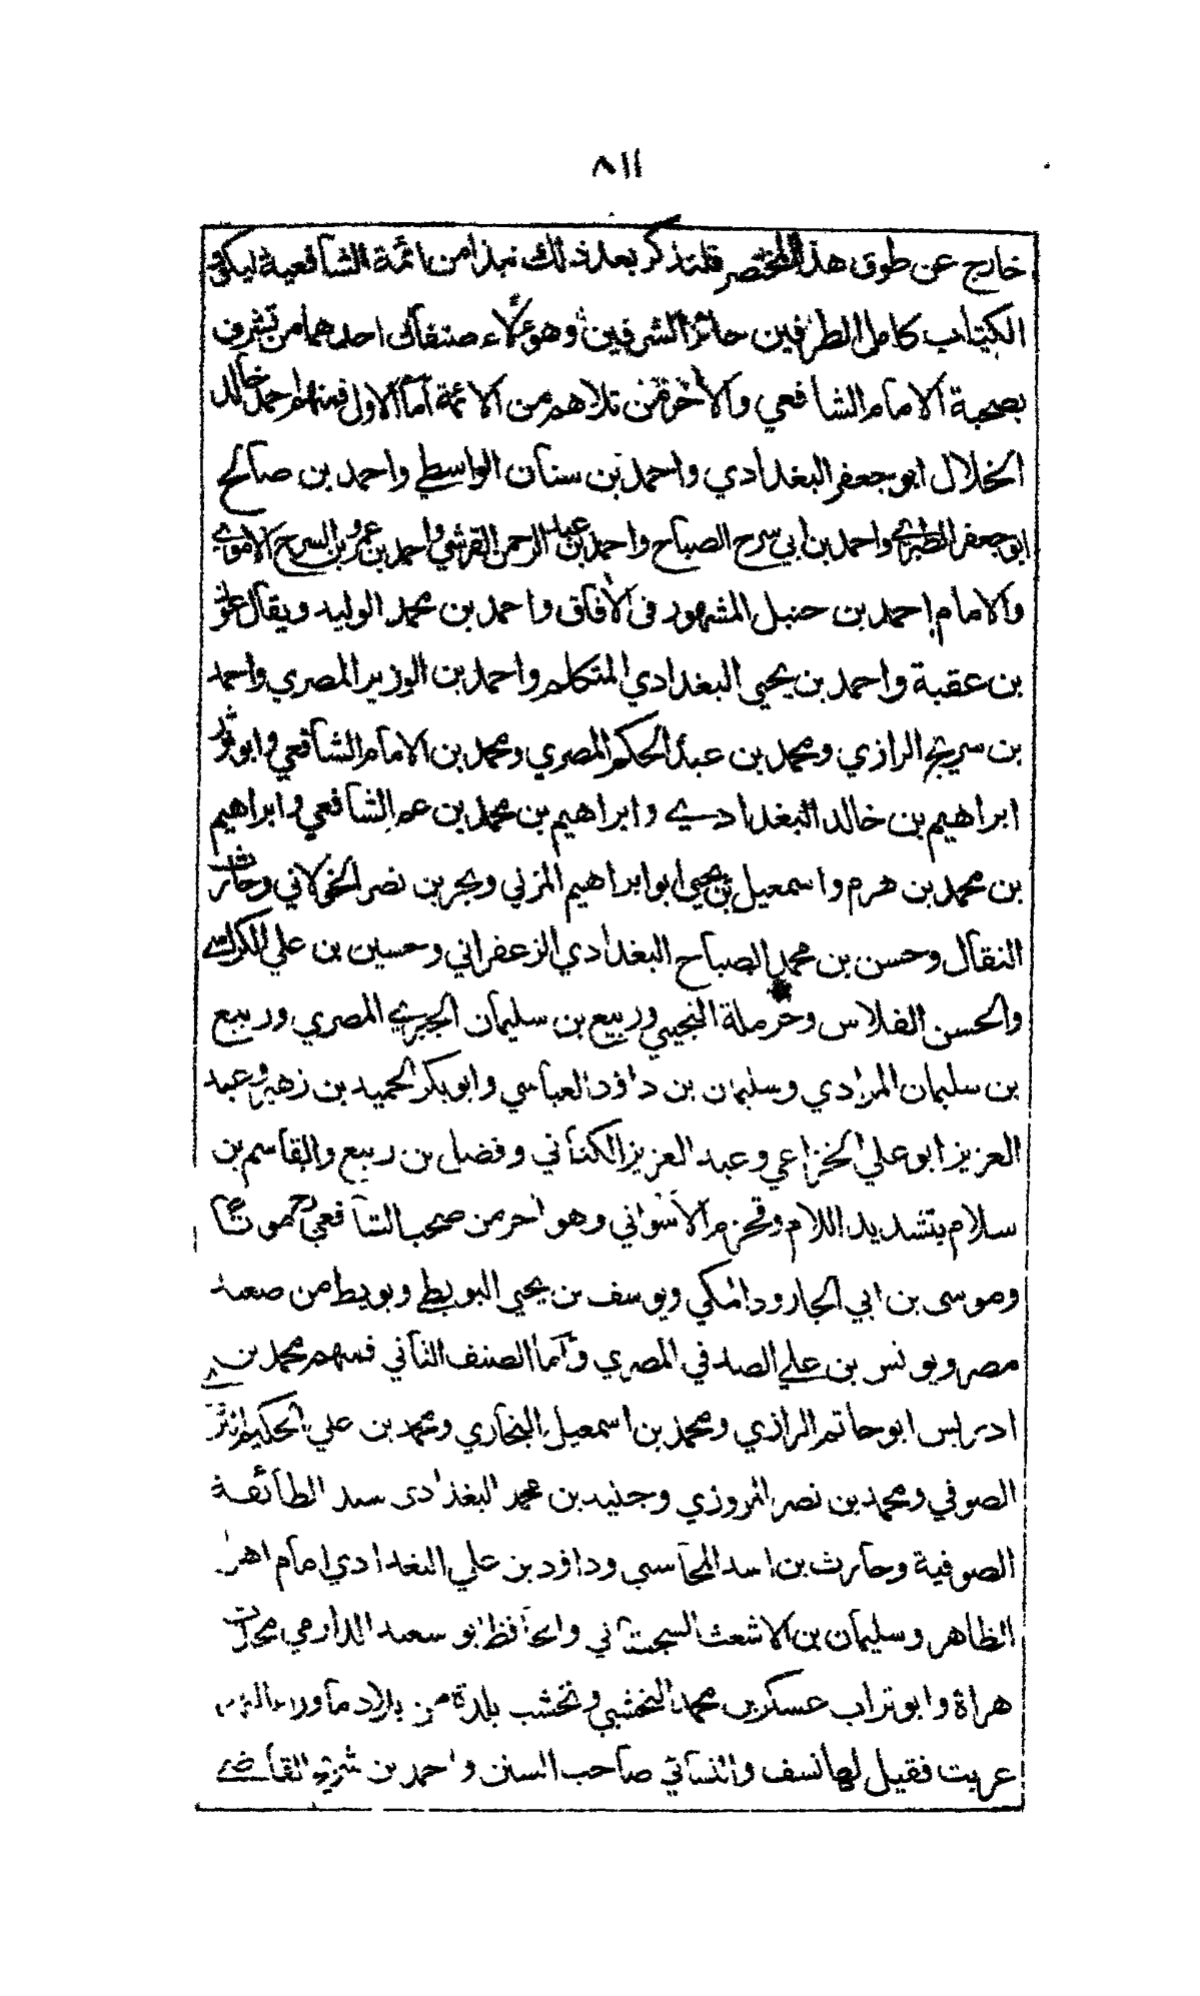 ٨١١
خارج عن طوق هذا المختصر فلنذكر بعد ذلك نبذا من ائمة الشافعية ليكون
الكتاب كامل الطرفين حائز الشرفين وهؤلاء صنفان احدهما من تشرف
بصحبة الامام الشافعي والآخر من تلاهم من الائمة أما الاول فمنهم احمد خالد
الخلال ابو جعفر البغدادي واحمد بن سنان الواسطي واحمد بن صالح
ابو جعفر الطبري واحمد بن ابي سرح الصباح واحمد بن عبد الرحمن القرشي واحمد بن عمرو بن السرح الاموي
والامام احمد بن حنبل المشهور في الآفاق واحمد بن محمد الوليد ويقال
بن عقبة واحمد بن يحيى البغدادي المتكلم واحمد بن الوزير المصري واحمد
بن سريج الرازي ومحمد بن عبد الحكم المصري ومحمد بن الامام الشافعي وابو ثور
ابراهيم بن خالد البغدادي وابراهيم بن محمد بن عم الشافعي وابراهيم
بن محمد بن هرم واسمعيل بن يحيى ابو ابراهيم المزني وبحر بن نصر الخولاني وحارث
النقال وحسن بن محمد الصباح البغدادي الزعفراني وحسين بن علي الكرابيسي
والحسن الفلاس وحرملة التجيبي وربيع بن سليمان الجيزي المصري وربيع
بن سليمان المرادي وسليمان بن داؤد العباسي وابو بكر الحميد بن زهير وعبد
العزيز ابو علي الخزاعي وعبد العزيز الكناني وفضل بن ربيع والقاسم بن
سلام بتشديد اللام وقحزم الاسواني وهو آخر من صحب الشافعي موتا
وموسى بن ابي الجارود المكي ويوسف بن يحيى البويطي وبويط من صعيد
مصر ويونس بن علي الصدفي المصري وأما الصنف الثاني فمنهم محمد بن
ادريس ابو حاتم الرازي ومحمد بن اسمعيل البخاري ومحمد بن علي الحكيم الترمذي
الصوفي ومحمد بن نصر المروزي وجنيد بن محمد البغدادي سيد الطائفة
الصوفية وحارث بن اسد المحاسبي وداؤد بن علي البغدادي امام اهل
الظاهر وسليمان بن الاشعث السجستاني والحافظ ابو سعيد الدارمي محدث
هراة وابو تراب عسكر بن محمد النخشبي ونخشب بلدة من بلاد ما وراء النهر
عربت فقيل لها نسف والنسائي صاحب السنن واحمد بن شريح القاضي